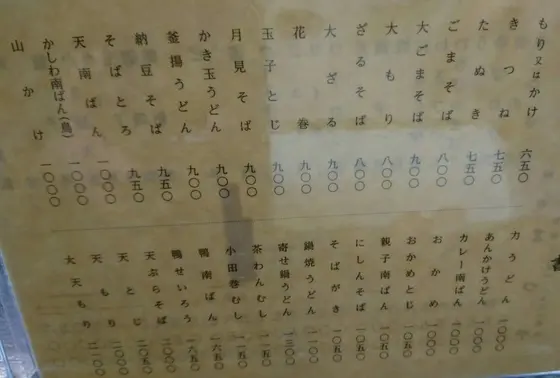 もり又はかけ 六五〇
きつね 七五〇
たぬき 七五〇
ごまそば 八〇〇
大ごまそば 九〇〇
大もり 八〇〇
ざるそば 八〇〇
大ざる 九〇〇
花巻 九〇〇
玉子とじ 九〇〇
月見そば 九〇〇
かき玉うどん 九〇〇
釜揚うどん 九〇〇
納豆そば 九五〇
そばとろ 九五〇
天南ばん 一〇〇〇
かしわ南ばん(鳥) 一〇〇〇
山かけ
力うどん 一〇〇〇
あんかけうどん 一〇〇〇
カレー南ばん 一〇〇〇
おかめ 一〇五〇
おかめとじ 一〇五〇
親子南ばん 一〇五〇
にしんそば 一〇五〇
そばがき 一〇五〇
鍋焼うどん 一一〇〇
寄せ鍋うどん 一三〇〇
茶わんむし 一一五〇
小田巻むし 一一五〇
鴨南ばん 一六五〇
鴨せいろう 一六五〇
天ぷらそば 二〇〇〇
天とじ 二〇五〇
天もり 二〇〇〇
大天もり 二一〇〇